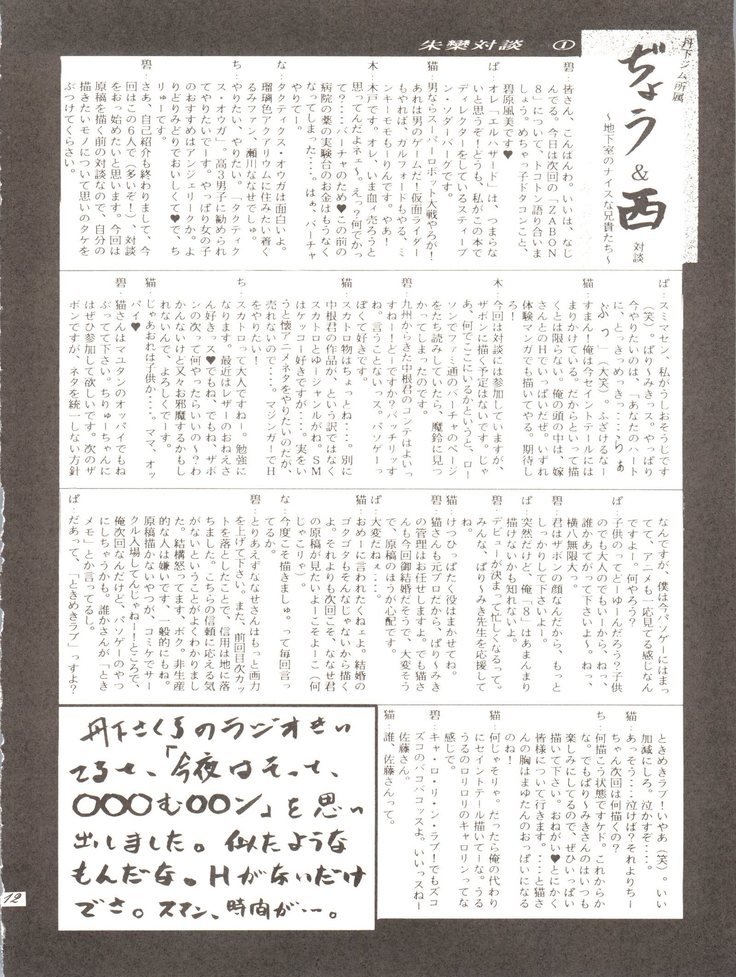 朱欒対談 ①
丹下ジム所属
ぢょう＆西
対談
～地下室のナイスな兄貴たち～
碧：皆さん、こんばんわ。いいは、なじ
んでる。今日は次回の「ZABON
8」について、トコトン語り合いま
しょう。めちゃっ子ドタコンこと、
碧原風美です♥
ぱ：オレ「エルハザード」は、つまらな
いと思うぞ！どうも、私がこの本で
ディレクターをしているスティーブ
ン・ソダーバーグです。
猫：男ならスーパーロボット大戦やろが！
あれは男のゲームだ！仮面ライダー
もやれば、ガルフォードもやる、ミ
ンキーモモもー！やるんです。やあ！
木：木戸です。オレ、いま血ィ売ろうと
思ってんだよネェ～。えっ？何でかっ
て？・・・バーチャのため♥この前の
病院の薬の実験台のお金はもうなく
なってしまった・・・。はぁ、バーチャ
やりてー。
な：タクティクス・オウガは面白いよ。
瑠璃色アクアリウムに住みたい着く
るみファン、瀬川ななせでしゅ。
ち：やりたい、やりたい。「タクティク
ス・オウガ」。高3男子に勧められ
てやりたいでーす。やっぱり女の子
のおすすめはアンジェリークか。よ
りどりみどりでおいしくて♥で、ち
りゅーです。
碧：さあ、自己紹介も終わりまして、今
回はこの6人で（多いぞ！）、対談
をおっ始めたいと思います。今回は
原稿を描く前の対談なので、自分の
描きたいモノについて思いのタケを
ぶつけてくらさい。
ぱ：スミマセン、私がうしおそうじです
（笑）。ぱり～みきっス。やっぱり
今やりたいのは、「あなたのハート
に、とっきっめっきっ・・・らぁ
ぶっ」（大笑）。ふざけるなー
すまん！俺は今セイントテールには
まりかけている。だからといって描
くとは限らない。俺の頭の中は、嫁
さんとのHでいっぱいだぜ。いずれ
体験マンガでも描いてやる。期待し
ろ！
木：今回は対談には参加していますが、
ザボンに描く予定はないです。じゃ
あ、何でここにいるかというと、ロー
ソンでファミ通のバーチャのページ
をたち読みしていたら、魔鈴に見つ
かってしまったのです。
碧：九州からきた中根君のコンテはよいっ
すね！！どーですか？バッチリっす
ね。言うことないっス。バソゲーっ
ぽくて好きです。
猫：スカトロ物はちょっとね・・・。別に
中根君の作品が、という訳ではなく
スカトロとゆージャンルがね。SM
はケッコー好きですが・・・。実をい
うと懐アニメネタをやりたいのだが、
売れないので・・・。マジンガーでH
をやりたい！
ち：スカトロって大人ですねー。勉強に
なります。最近はレザーのおねえさ
ん好きっス♥でもね、でもね、ザボ
ンの次って何やったらいいの～？わ
かんないけど又々お邪魔するかもし
れないんで、よろしくでーす。
猫：じゃあおれは子供か・・・。ママ、オッ
パイ♥
碧：猫さんはマユタンのオッパイでもね
ぶってて下さい。ちりゅーちゃんに
はぜひ参加して欲しいです。次のザ
ボンですが、ネタを統一しない方針
なんですが、僕は今パソゲーにはまっ
てて、アニメも一応見てる感じなん
ですよー。何やろう？
ぱ：子供のってどーゆーんだろう？子供
のでも大人のでもいーから、ねっ、
誰かあてがって下さいよ～、ねっ、
横八無限大っ。
碧：君はザボンの顔なんだから、もっと
しっかりして下さいよー。
ぱ：突然だけど、俺「8」はあまんまり
描けないかも知れないよ。
碧：デビューが決まって忙しくなるって。
みんな、ぱり～みき先生を応援して
ね。
猫：けつひっぱたく役はまかせてね。
碧：猫さんも元プロだから、ぱり～みき
の管理はお任せしますよ。でも猫さ
んも今回御結婚だそうで、大変そう
で、原稿のほうが心配です。
ぱ：大変だねぇ・・・。
猫：おめーに言われたくねェよ。結婚の
ゴタゴタもそんなじゃないから描く
よ。それよりも次回こそ、ななせ君
の原稿が見たいよーこそよーこ（何
じゃこりゃ）。
な：今度こそ描きましゅ。って毎回言っ
てるか。
碧：とりあえずななせさんはもっと画力
を上げて下さい。また、前回目次カッ
トを落としたことで、信用は地に落
ちました。こちらの信頼に応える気
がないということがよくわかりまし
た。結構怒ってます、ボク。非生産
的な人は嫌いです、一般的にもね。
原稿描かないやつが、コミケでサー
クル入場してんじゃねー！ところで、
俺次回なんだけど、パソゲーのやつ
にしちゃうかも。誰かさんが「とき
メモ」とか言ってるし。
ぱ：だあって、「ときめきラブ」っすよ？
ときめきラブ！いやあ（笑）。いい
加減にしろ。泣かすぞ・・・。
猫：あっそう・・・泣けば？それよりちー
ちゃん次回は何描くの？
ち：何描こう状態ですケド。これからか
な。でもぱり～みきさんのはいつも
楽しみにしてるので、ぜひいっぱい
描いて下さい。おねがい♥とにかく
皆様について行きます。・・・と猫さ
んの胸はまゆたんのおっぱいになる
のね！
猫：何じゃそりゃ。だったら俺の代わり
にセイントテール描いてーな。うる
うるのロリロリのキャロリンってな
感じで。
碧：キャ・ロ・リン・ラブ！でもズコ
ズコのベコベコッスよ。いいっスねー
佐藤さん。
猫：誰、佐藤さんって。
丹下さくらのラジオきい
てるせ、「今夜はそっと、
〇〇〇む〇〇ン」を思い
出しました。似たような
もんだな。Hがないだけ
でさ。スマン、時間が…。
12